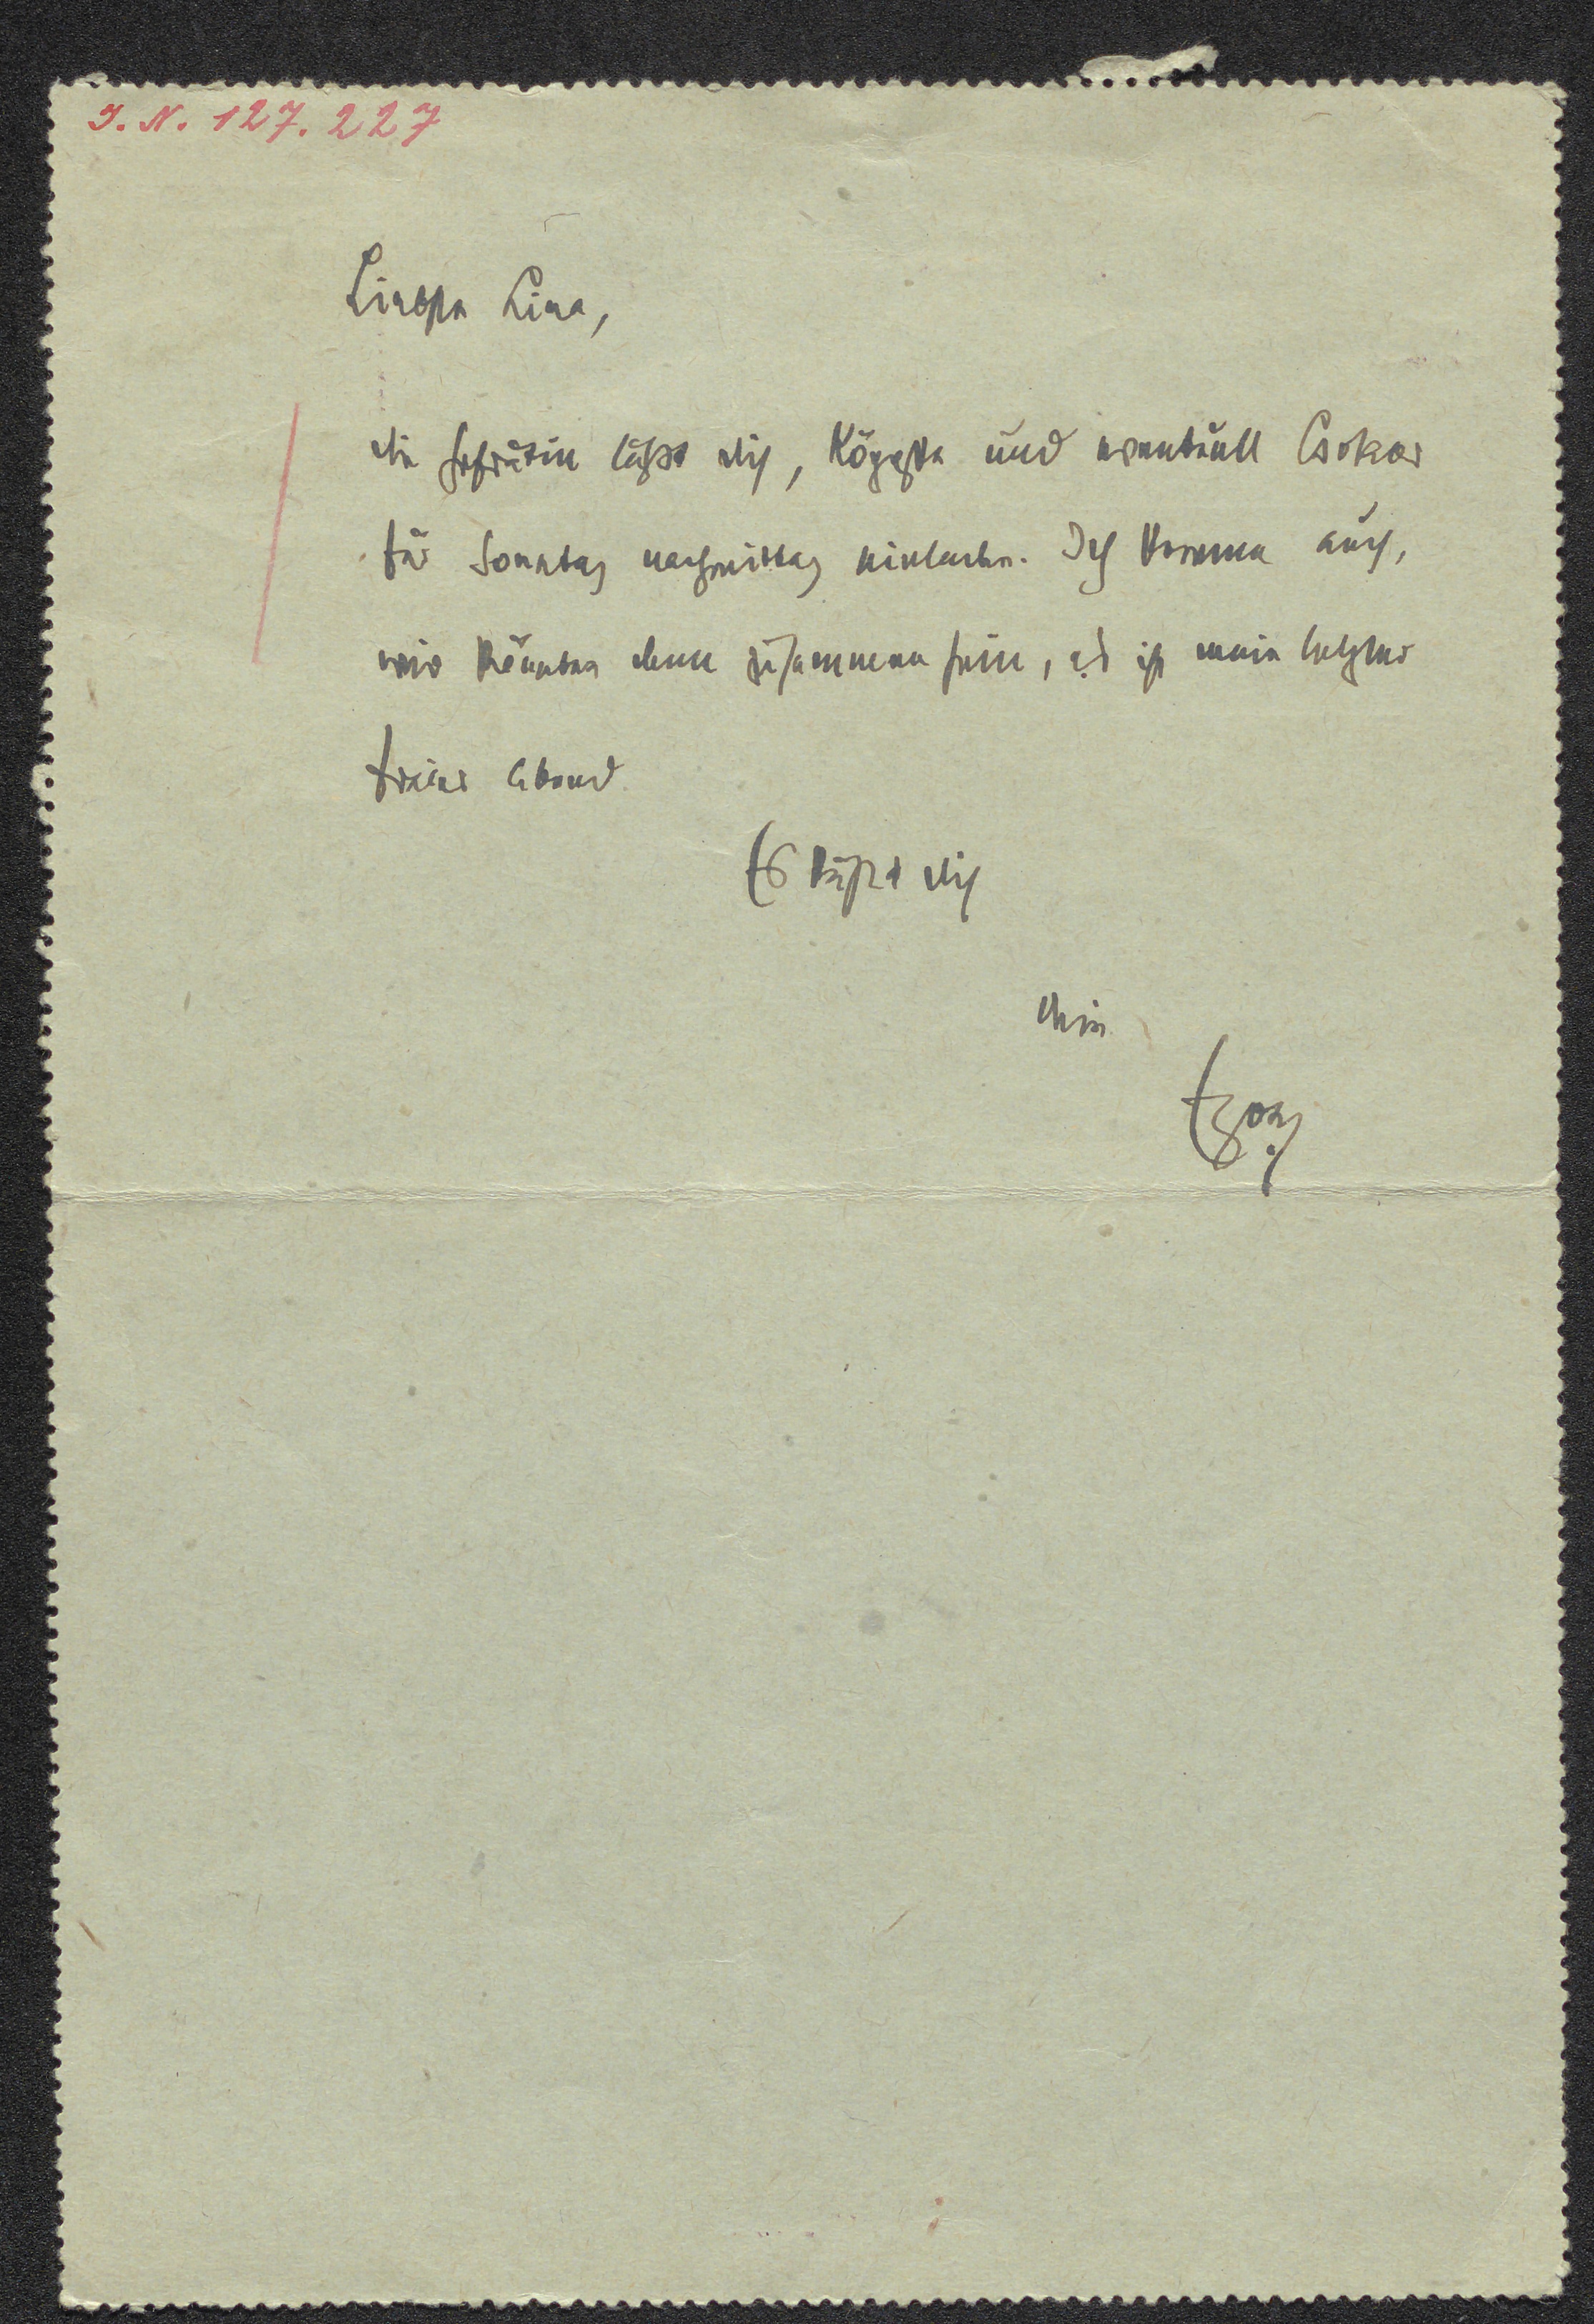 I. N. 127.227
Liebste Lina,
die Hofrätin läßt dich, Köppke und eventuell Csokor
für Sonntag nachmittag einladen. Ich komme auch,
wir könnten dann zusammen sein, es ist mein letzter
freier Abend
Es küßt dich
Dein
Egon